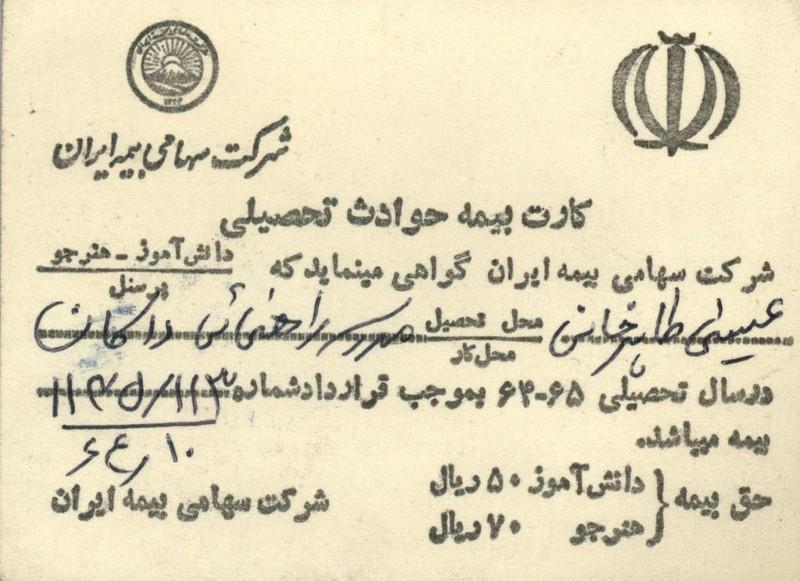 ۱۳۱۴
شرکت سهامی بیمه ایران
کارت بیمه حوادث تحصیلی
شرکت سهامی بیمه ایران گواهی مینماید که دانش‌آموز - هنرجو
پرسنل
عیسی طاهرخانی محل تحصیل مدرسه راهنمائی
محل‌کار
درسال تحصیلی ۶۵-۶۴ بموجب قراردادشماره
بیمه میباشد.
حق بیمه { دانش‌آموز ۵۰ ریال
هنرجو ۷۰ ریال
شرکت سهامی بیمه ایران